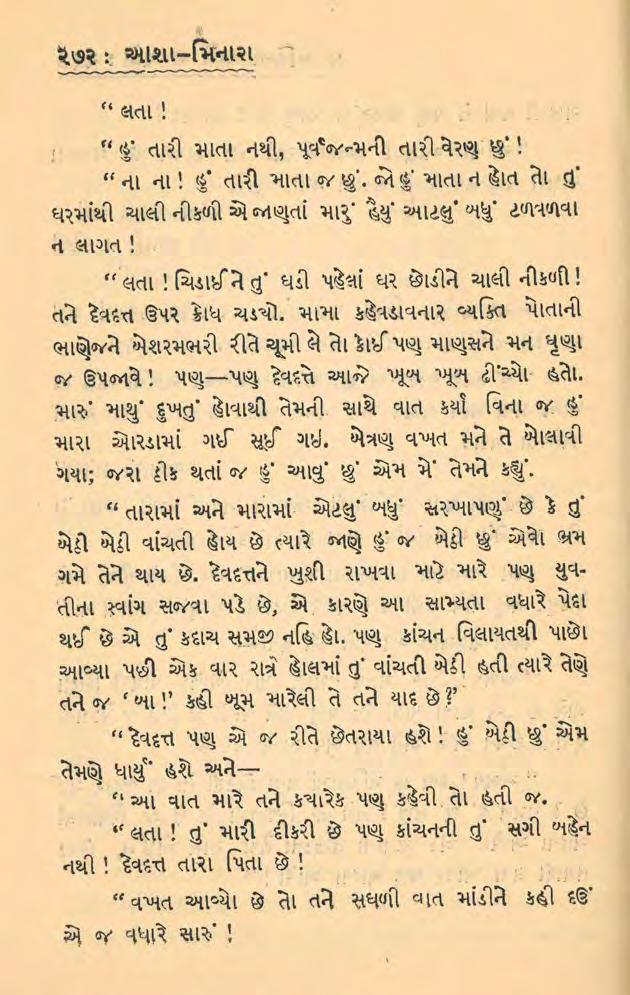 ૨૭૨ : આશા-મિનારા
“ લતા !
“ હું તારી માતા નથી, પૂર્વજન્મની તારી વેરણ છું !
“ ના ના ! હું તારી માતા જ છું. જો હું માતા ન હોત તો તું
ઘરમાંથી ચાલી નીકળી એ જાણતાં મારું હૈયું આટલું બધું ટળવળવા
ન લાગત !
“ લતા ! ચિડાઈને તું ઘડી પહેલાં ઘર છોડીને ચાલી નીકળી !
તને દેવદત્ત ઉપર ક્રોધ ચડ્યો. મામા કહેવડાવનાર વ્યક્તિ પોતાની
ભાણેજને બેશરમભરી રીતે ચૂમી લે તો કોઈ પણ માણસને મન ઘૃણા
જ ઉપજાવે ! પણ—પણ દેવદત્તે આજે ખૂબ ખૂબ ઢીંચ્યો હતો.
મારું માથું દુખતું હોવાથી તેમની સાથે વાત કર્યા વિના જ હું
મારા ઓરડામાં ગઈ સૂઈ ગઇ. બેત્રણ વખત મને તે બોલાવી
ગયા; જરા ઠીક થતાં જ હું આવું છું એમ મેં તેમને કહ્યું.
“ તારામાં અને મારામાં એટલું બધું સરખાપણું છે કે તું
બેઠી બેઠી વાંચતી હોય છે ત્યારે જાણે હું જ બેઠી છું એવો ભ્રમ
ગમે તેને થાય છે. દેવદત્તને ખુશી રાખવા માટે મારે પણ યુવ-
તીના સ્વાંગ સજવા પડે છે, એ કારણે આ સામ્યતા વધારે પેદા
થઈ છે એ તું કદાચ સમજી નહિ હો. પણ કાંચન વિલાયતથી પાછો
આવ્યા પછી એક વાર રાત્રે હોલમાં તું વાંચતી બેઠી હતી ત્યારે તેણે
તને જ ‘ બા !’ કહી બૂમ મારેલી તે તને યાદ છે ?’
“ દેવદત્ત પણ એ જ રીતે છેતરાયા હશે ! હું બેઠી છું એમ
તેમણે ધાર્યું હશે અને—
“ આ વાત મારે તને કયારેક પણ કહેવી તો હતી જ.
“ લતા ! તું મારી દીકરી છે પણ કાંચનની તું સગી બહેન
નથી ! દેવદત્ત તારા પિતા છે !
“ વખત આવ્યો છે તો તને સઘળી વાત માંડીને કહી દઉં
એ જ વધારે સારું !